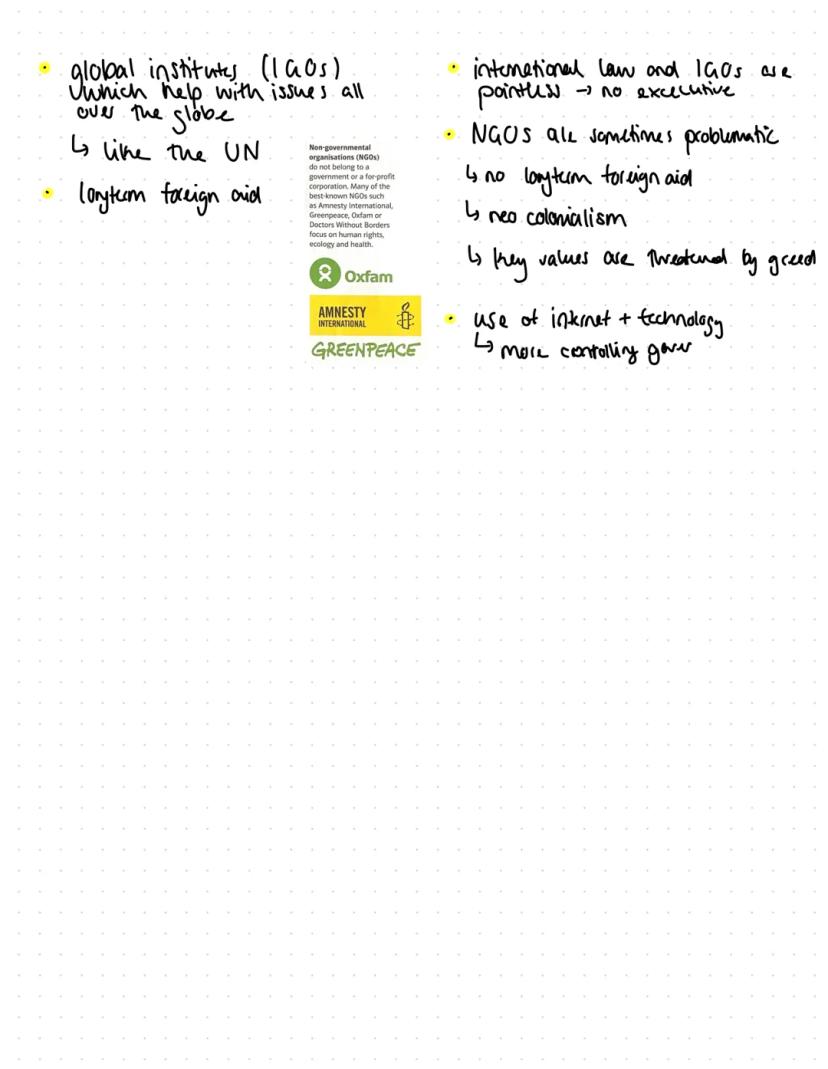 • global institutes (IGOs)
which help with issues all
over the globe
↳ like the UN
• longterm foreign aid
Non-governmental
organisations (NGOs)
do not belong to a
government or a for-profit
corporation. Many of the
best-known NGOs such
as Amnesty International,
Greenpeace, Oxfam or
Doctors Without Borders
focus on human rights,
ecology and health.
Oxfam
AMNESTY
INTERNATIONAL
GREENPEACE
• international law and IGOs are
pointless → no excecutive
• NGOs are sometimes problematic
↳ no longterm foreign aid
↳ neo colonialism
↳ key values are threatened by greed
• use of internet + technology
↳ more controlling